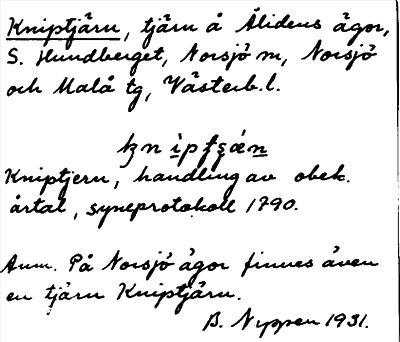 Kniptjärn, tjärn å Ålidens ägor,
S. Hundberget, Norsjö sn, Norsjö
och Malå tg, Västerb.l.
Kniptjern, handling av obek.
årtal, syneprotokoll 1790.
Anm. På Norsjö ägor finnes även
en tjärn Kniptjärn.
B. Nyppen 1931.